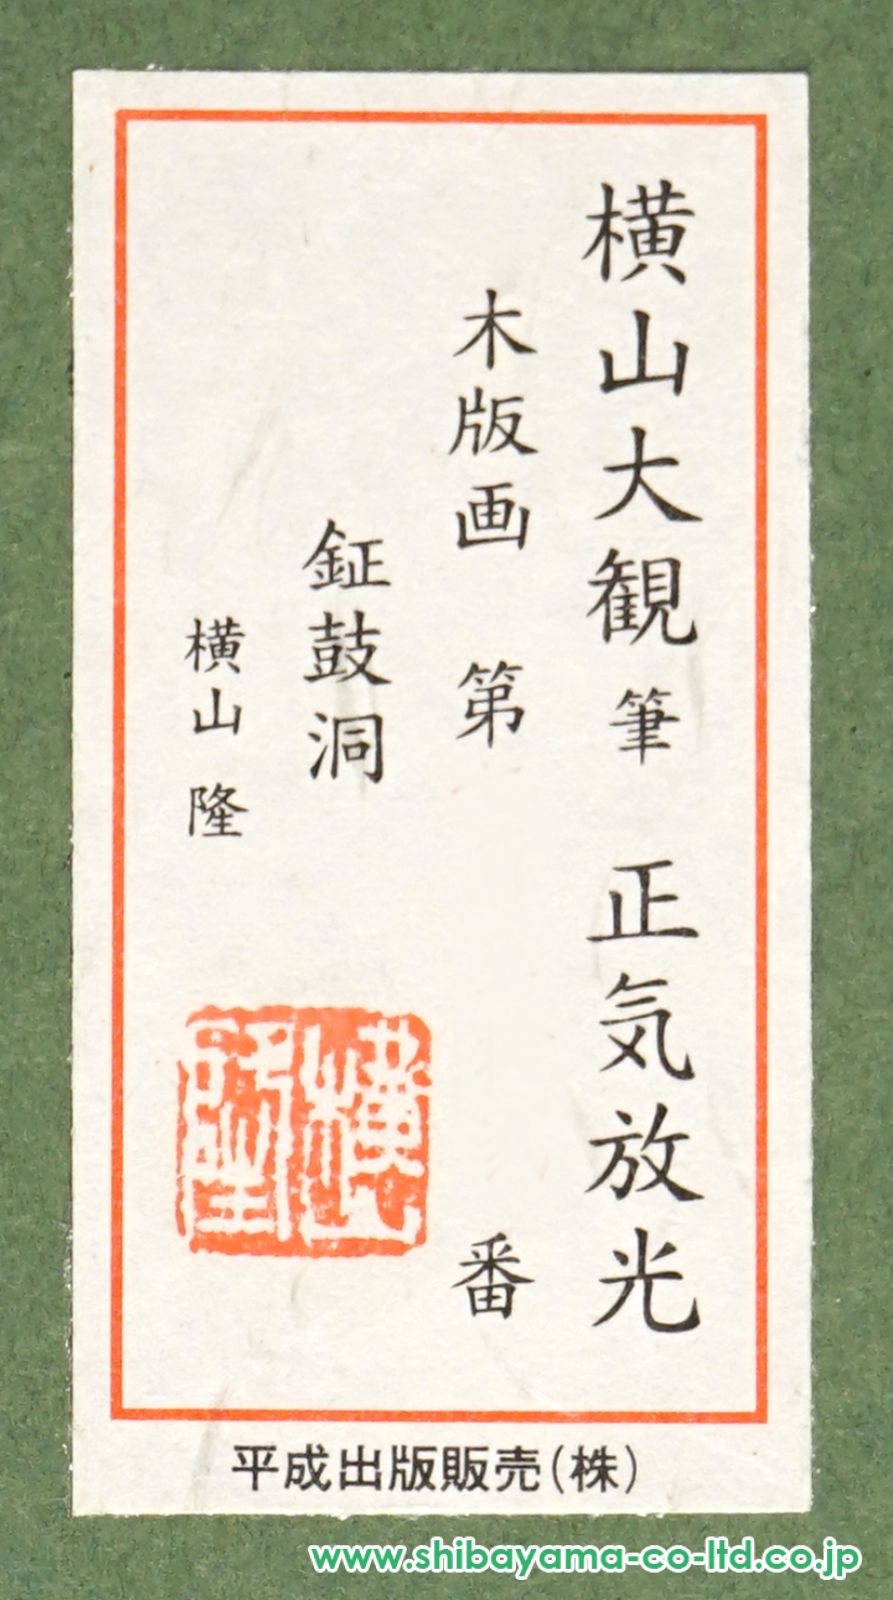 横山大観筆 正気放光
木版画 第 番
鉦鼓洞
横山 隆
横山隆
平成出版販売(株)
www.shibayama-co-ltd.co.jp